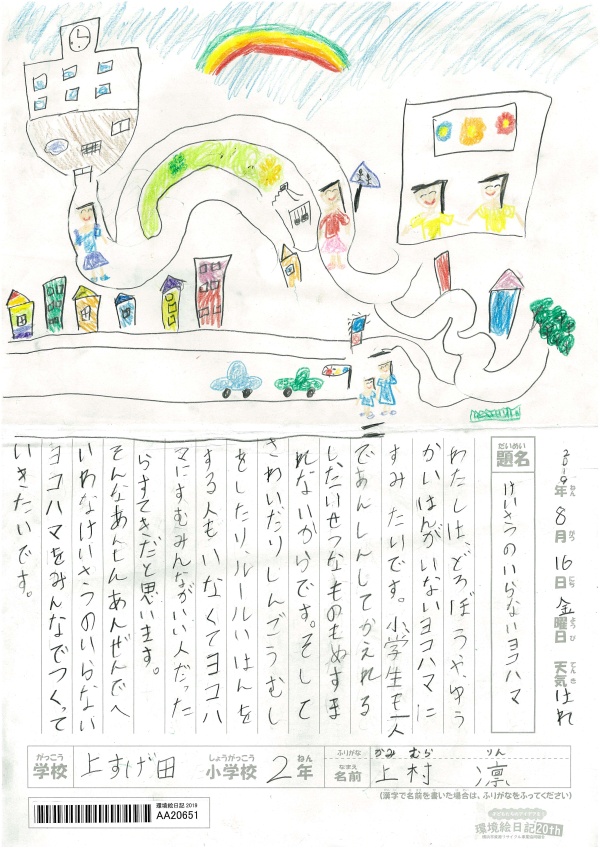 2019年8月16日金曜日 天気はれ
ねん がつ にち ようび てんき
だいめい
題名 けいさつのいらないヨコハマ
わたしは、どろぼうや、ゆう
かいはんがいないヨコハマに
すみたいです。小学生も一人
であんしんしてかえれる
し、たいせつなものもぬすま
れないからです。そして
さわいだりしんごうむし
をしたり、ルールいはんを
する人もいなくてヨコハ
マにすむみんながいい人だった
らすてきだと思います。
そんなあんしんあんぜんでへ
いわなけいさつのいらない
ヨコハマをみんなでつくって
いきたいです。
がっこう しょうがっこう ねん
学校 上すげ田 小学校 2年
ふりがな かみ むら りん
なまえ
名前 上村 凛
(漢字で名前を書いた場合は、ふりがなをふってください)
環境絵日記 2019
AA20651
環境絵日記20th